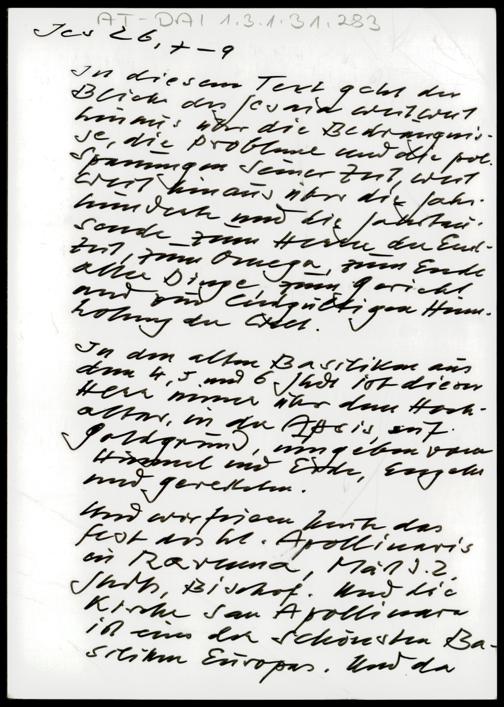 AT-DAI 1.3.1.31.283
Jes 26, 7-9
In diesem Text geht der
Blick des Jesaia weit weit
hinaus über die Bedrängnis-
se, die Probleme und die pol.
Spannungen seiner Zeit, weit
weit hinaus über die Jahr-
hunderte und die Jahrtau-
sende zum Herrn der End-
zeit, zum Omega, zum Ende
aller Dinge, zum Gericht
und zur endgültigen Heim-
holung der Welt.
In den alten Basiliken aus
dem 4, 5 und 6 Jhdt ist dieser
Herr immer über dem Hoch-
altar, in der Apsis, auf
Goldgrund, umgeben vom
Himmel und Erde, Engeln
und Gerechten.
Und wir feiern heute das
Fest des hl. Apollinaris
in Ravenna, Mär 1. 2.
Jhdts, Bischof. Und die
Kirche San Apollinare
ist eine der schönsten Ba-
siliken Europas. Und da